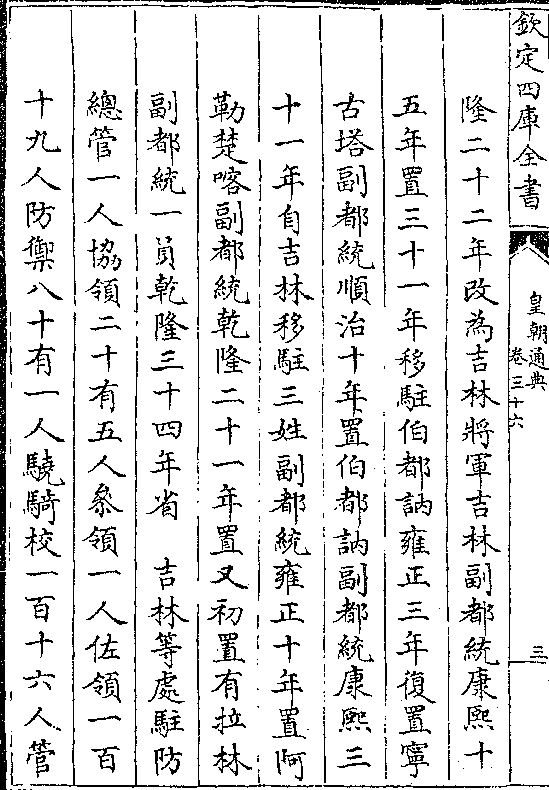 欽定四庫全書
皇朝通典
卷三十六
三
隆二十二年改為吉林將軍吉林副都統康熙十
五年置三十一年移駐伯都訥雍正三年復置寧
古塔副都統順治十年置伯都訥副都統康熙三
十一年自吉林移駐三姓副都統雍正十年置阿
勒楚喀副都統乾隆二十一年置又初置有拉林
副都統一員乾隆三十四年省 吉林等處駐防
總管一人協領二十有五人叅領一人佐領一百
十九人防禦八十有一人驍騎校一百十六人管